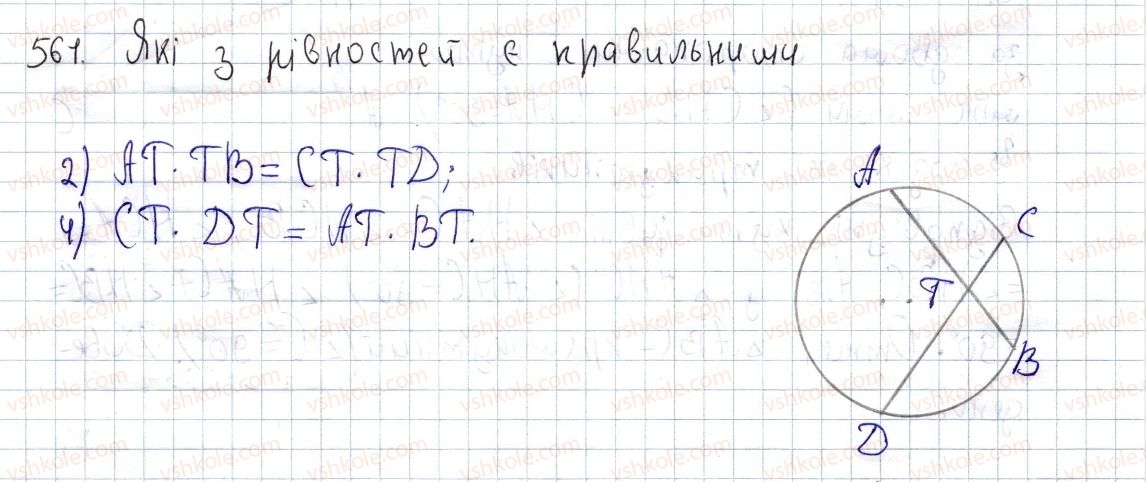 561. Які з рівностей є правильними
2) AT · TB = CT · TD;
4) CT · DT = AT · BT.
A
C
T
B
D